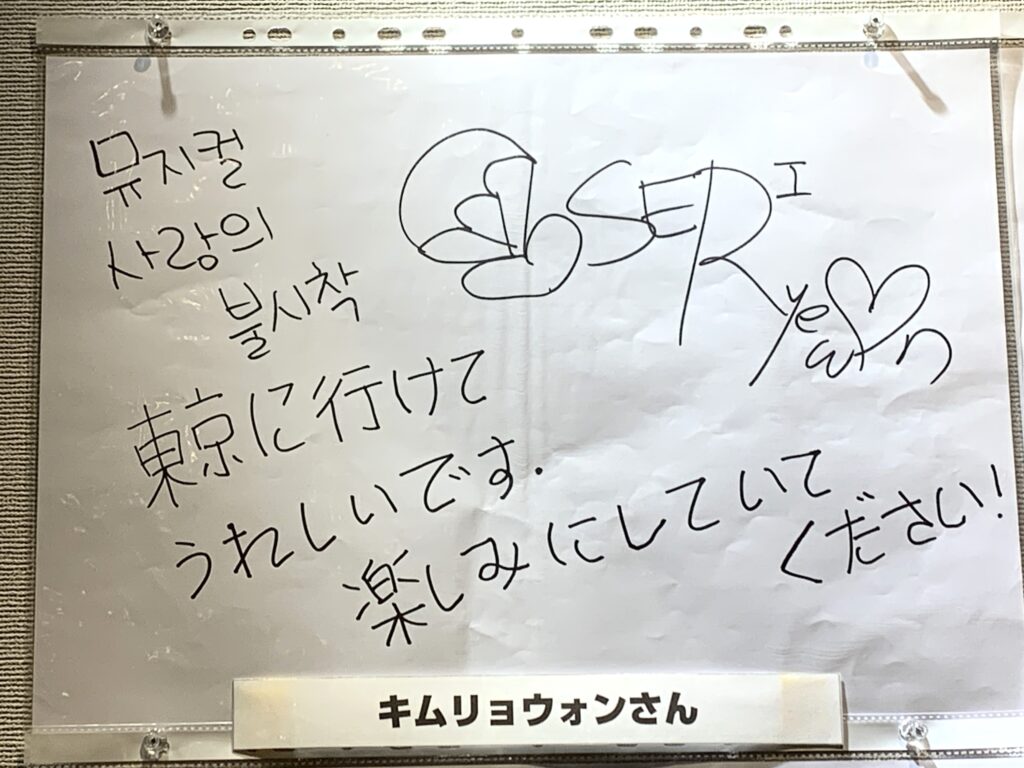 뮤지컬
사랑의
불시착
SERI
Ryeowon
東京に行けて
うれしいです.
楽しみにしていて
ください!
キムリョウォンさん